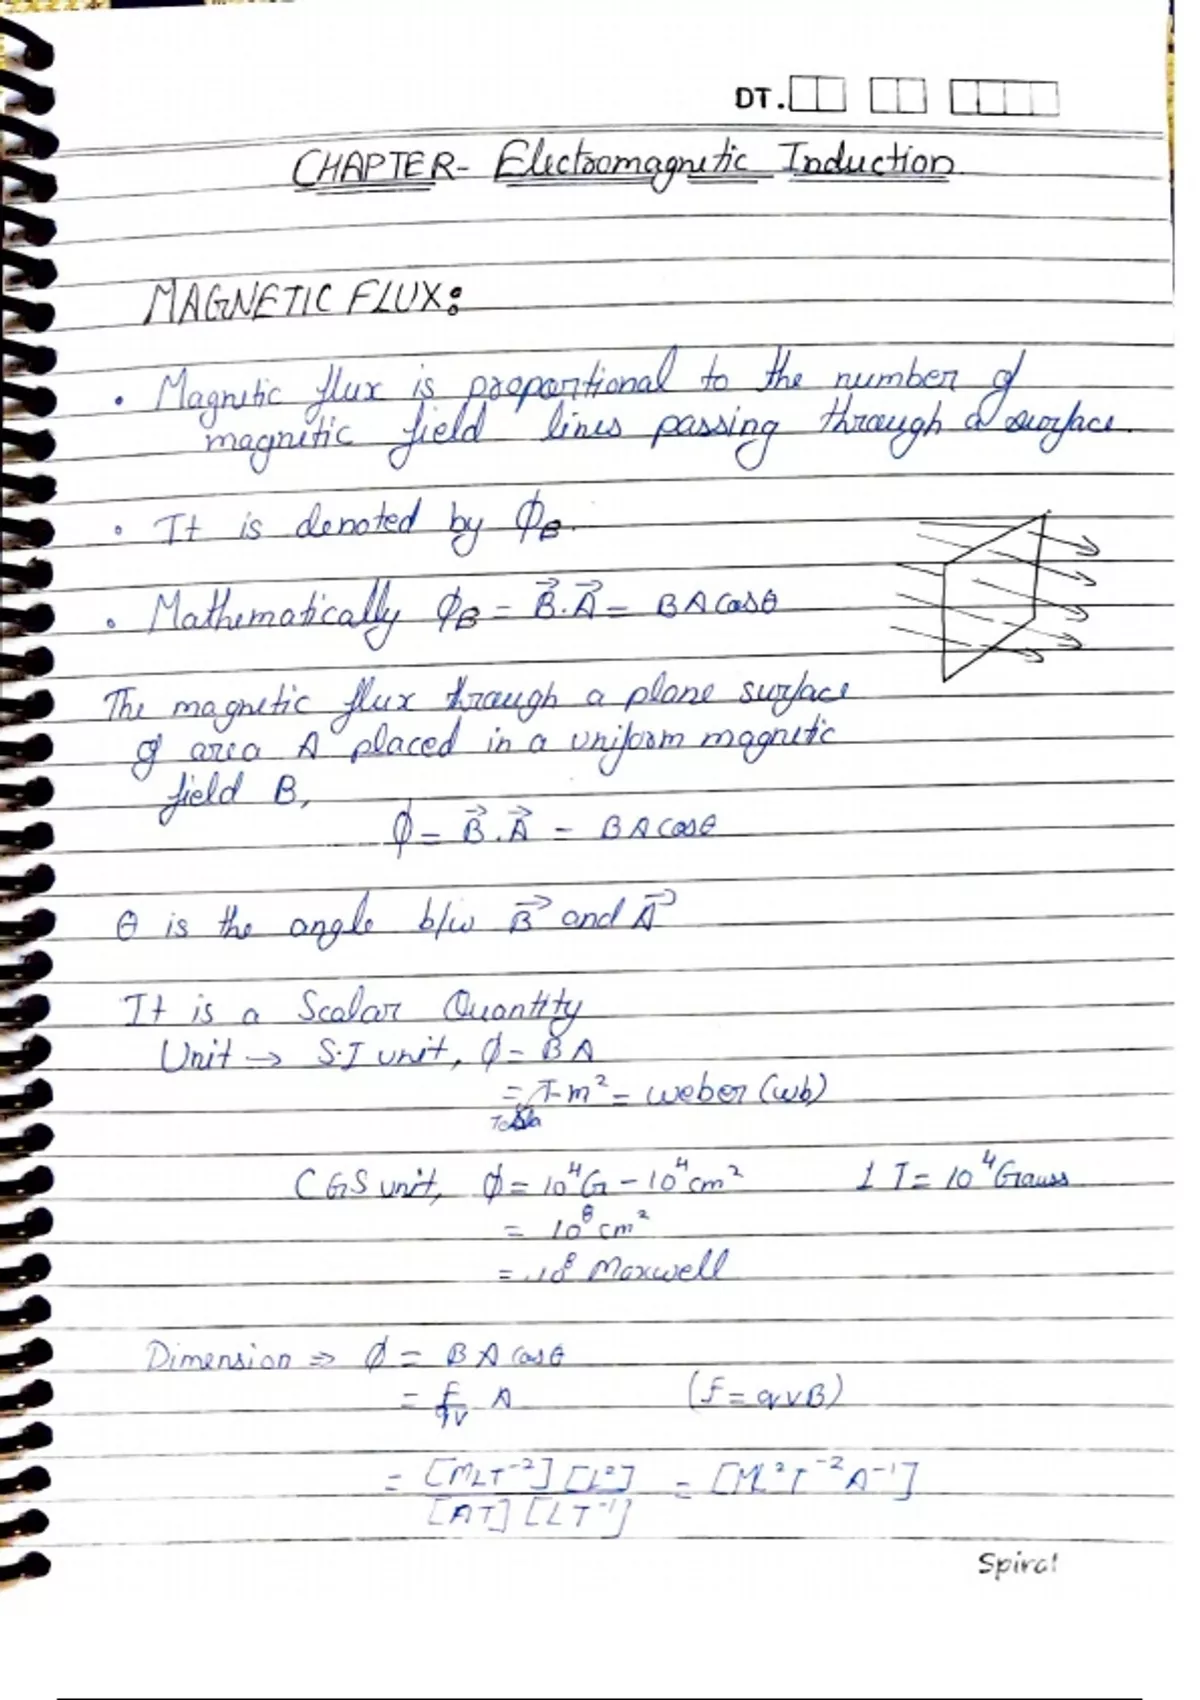 DT.
CHAPTER- Electromagnetic Induction
MAGNETIC FLUX:
• Magnetic flux is proportional to the number of
magnetic field lines passing through a surface.
• It is denoted by ϕB.
• Mathematically ϕB = B⃗.A⃗ = BA cosθ
The magnetic flux through a plane surface
of area A placed in a uniform magnetic
field B,
ϕ = B⃗.A⃗ = BA cosθ
θ is the angle b/w B⃗ and A⃗
It is a Scalar Quantity
Unit → S.I unit, ϕ = BA
= T-m² = weber (wb)
Tesla
CGS unit, ϕ = 10⁴G - 10⁴cm² 1 T = 10⁴Gauss
= 10⁸ cm²
= 10⁸ Maxwell
Dimension ⇒ ϕ = BA cosθ
= F/qv A (F = qvB)
= [MLT⁻²] [L²] / [AT] [LT⁻¹] = [ML²T⁻²A⁻¹]
Spiral